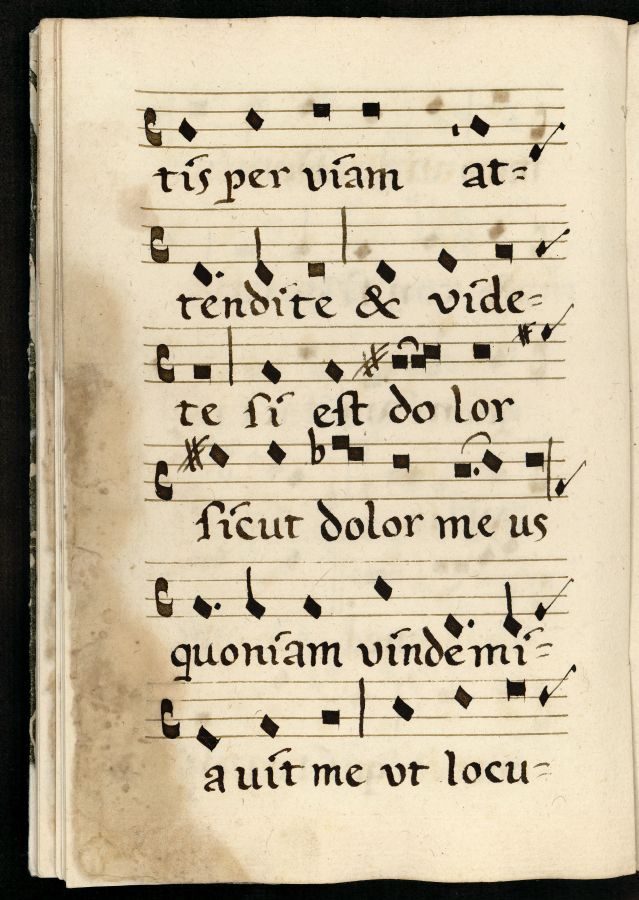 tis per viam at=
tendite & vide=
te si est dolor
sicut dolor me us
quoniam vindemi=
avit me vt locu=